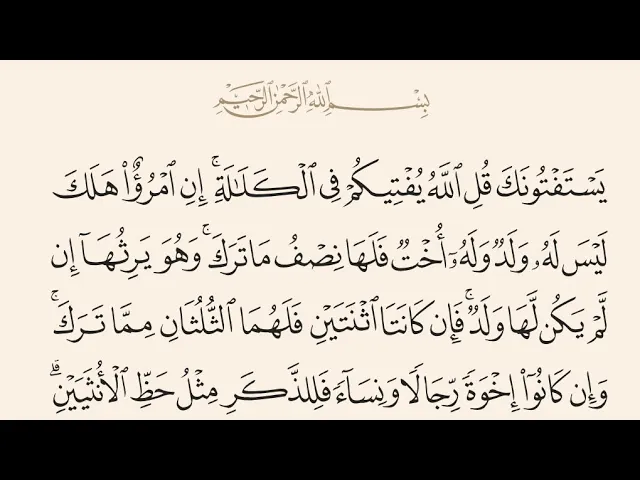 بِسْمِ ٱللَّهِ ٱلرَّحْمَٰنِ ٱلرَّحِيمِ
يَسْتَفْتُونَكَ قُلِ ٱللَّهُ يُفْتِيكُمْ فِى ٱلْكَلَٰلَةِ ۚ إِنِ ٱمْرُؤٌا۟ هَلَكَ
لَيْسَ لَهُۥ وَلَدٌ وَلَهُۥٓ أُخْتٌ فَلَهَا نِصْفُ مَا تَرَكَ ۚ وَهُوَ يَرِثُهَآ إِن
لَّمْ يَكُن لَّهَا وَلَدٌ ۚ فَإِن كَانَتَا ٱثْنَتَيْنِ فَلَهُمَا ٱلثُّلُثَانِ مِمَّا تَرَكَ ۚ
وَإِن كَانُوٓا۟ إِخْوَةً رِّجَالًا وَنِسَآءً فَلِلذَّكَرِ مِثْلُ حَظِّ ٱلْأُنثَيَيْنِ ۗ